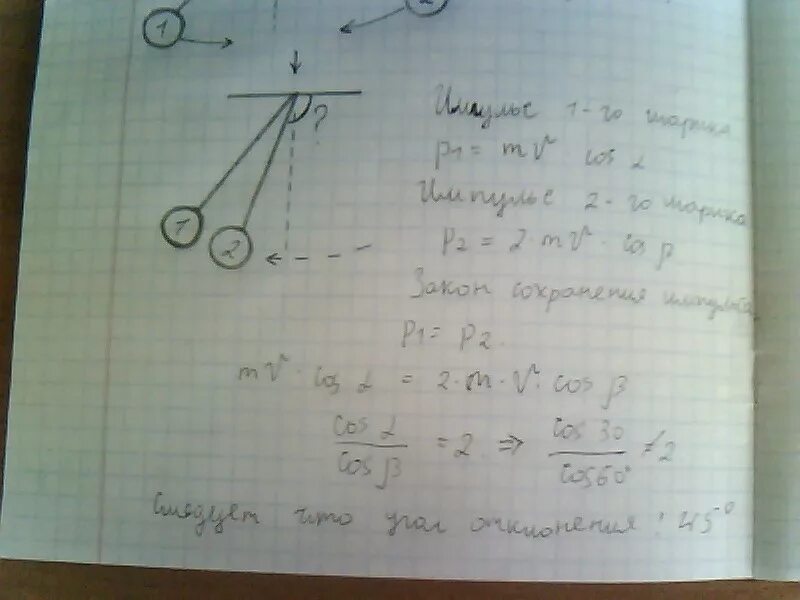 1
2
?
1
2
Импульс 1-го шарика
p1 = mV cos α
Импульс 2-го шарика
P2 = 2·mV · cos β
Закон сохранения импульса
P1 = P2.
mV · cos α = 2·m·V· cos β
cos α / cos β = 2 ⇒ cos 30 / cos 60° ≠ 2
Следует что угол отклонения : 45°